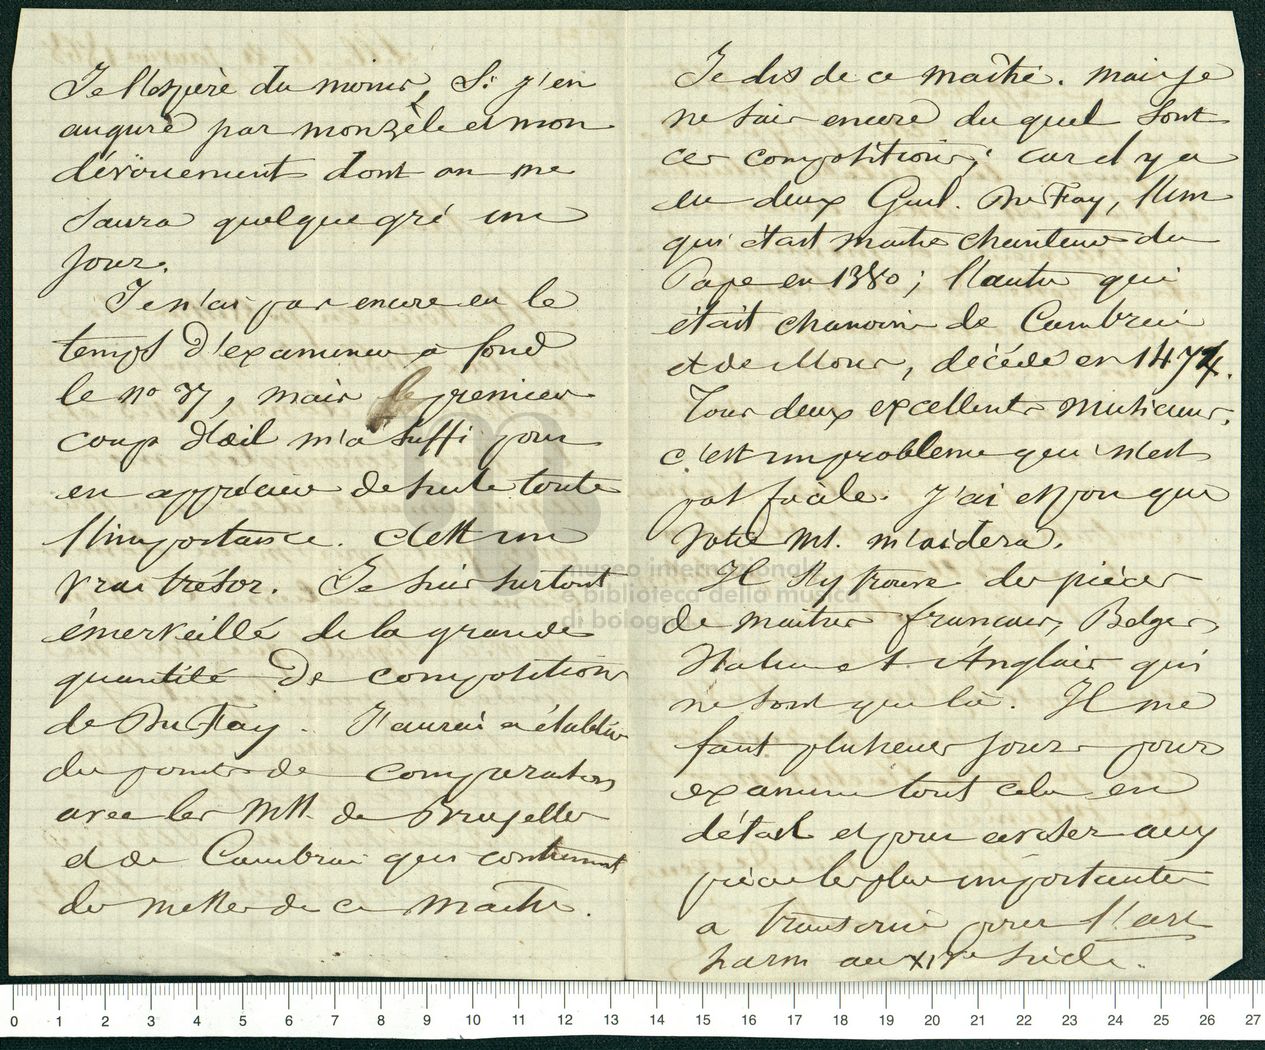 Je l'espère du moins, si j'en
augure par mon zèle et mon
dévouement dont on me
saura quelque gré un
jour.
Je n'ai pas encore eu le
temps d'examiner a fond
le no 37, mais le premier
coup d'œil m'a suffi pour
en apprécier de suite toute
l'importance. C'est un
vrai trésor. Je suis surtout
émerveillé de la grande
quantité de compositions
de Du Fay. J'aurai a établir
des points de comparaison
avec les Mss. de Bruxelles
et de Cambrai qui contiennent
des messes de ce maître.
Je dis de ce maître. mais je
ne sais encore du quel sont
ces compositions; car il y a
eu deux Guil. Du Fay, l'un
qui était maitre chanteur du
Pape en 1380; l'autre qui
était chanoine de Cambrai
et de Mons, décédé en 1474.
Tous deux excellents musiciens.
c'est un problème qui n'est
pas facile. J'ai espoir que
votre Ms. m'aidera.
Il s'y trouve des pièces
de maitres francais, Belges,
Italiens et Anglais qui
ne sont que là. Il me
faut plusieurs jours pour
examiner tout cela en
détail et pour aviser aux
pièces les plus importantes
a transcrire pour l'art
harm au XIVe siècle.
museo internazionale
e biblioteca della musica
di bologna
0 1 2 3 4 5 6 7 8 9 10 11 12 13 14 15 16 17 18 19 20 21 22 23 24 25 26 27